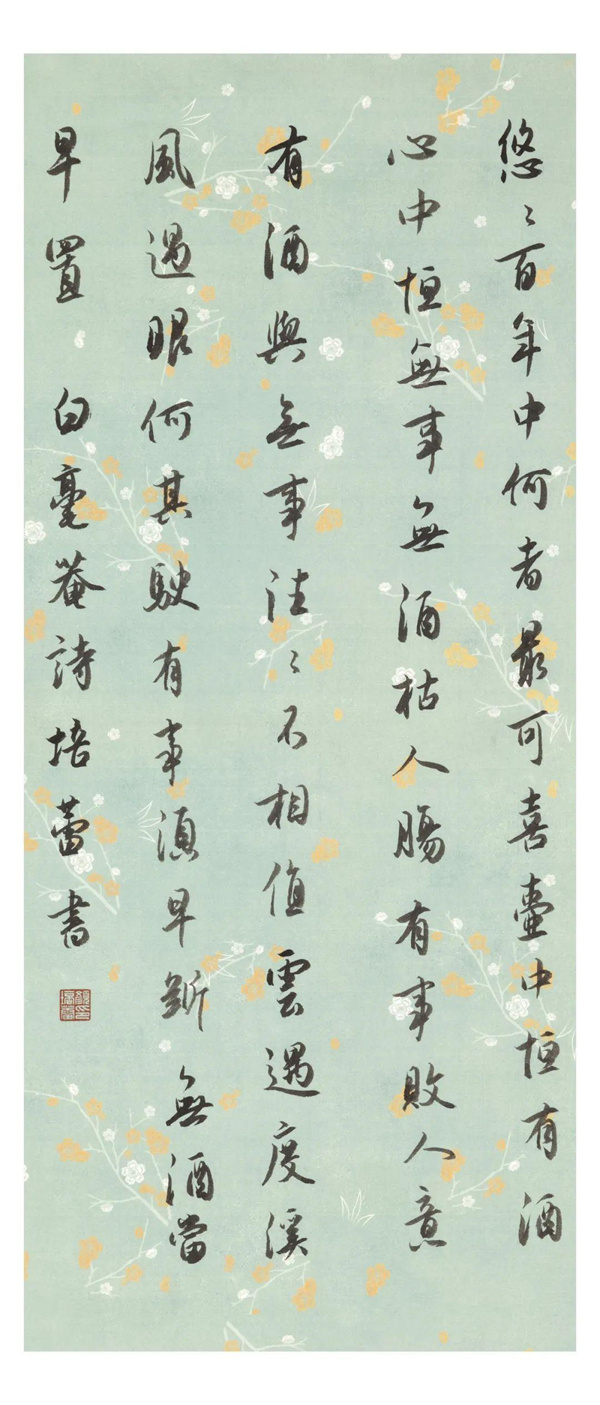 悠〻百年中何者最可喜壺中恒有酒
心中恒無事無酒枯人腸有事敗人意
有酒與無事往〻不相值雲過度溪
風過眼何其駛有事須早斷無酒當
早置　白毫菴詩培蕾書